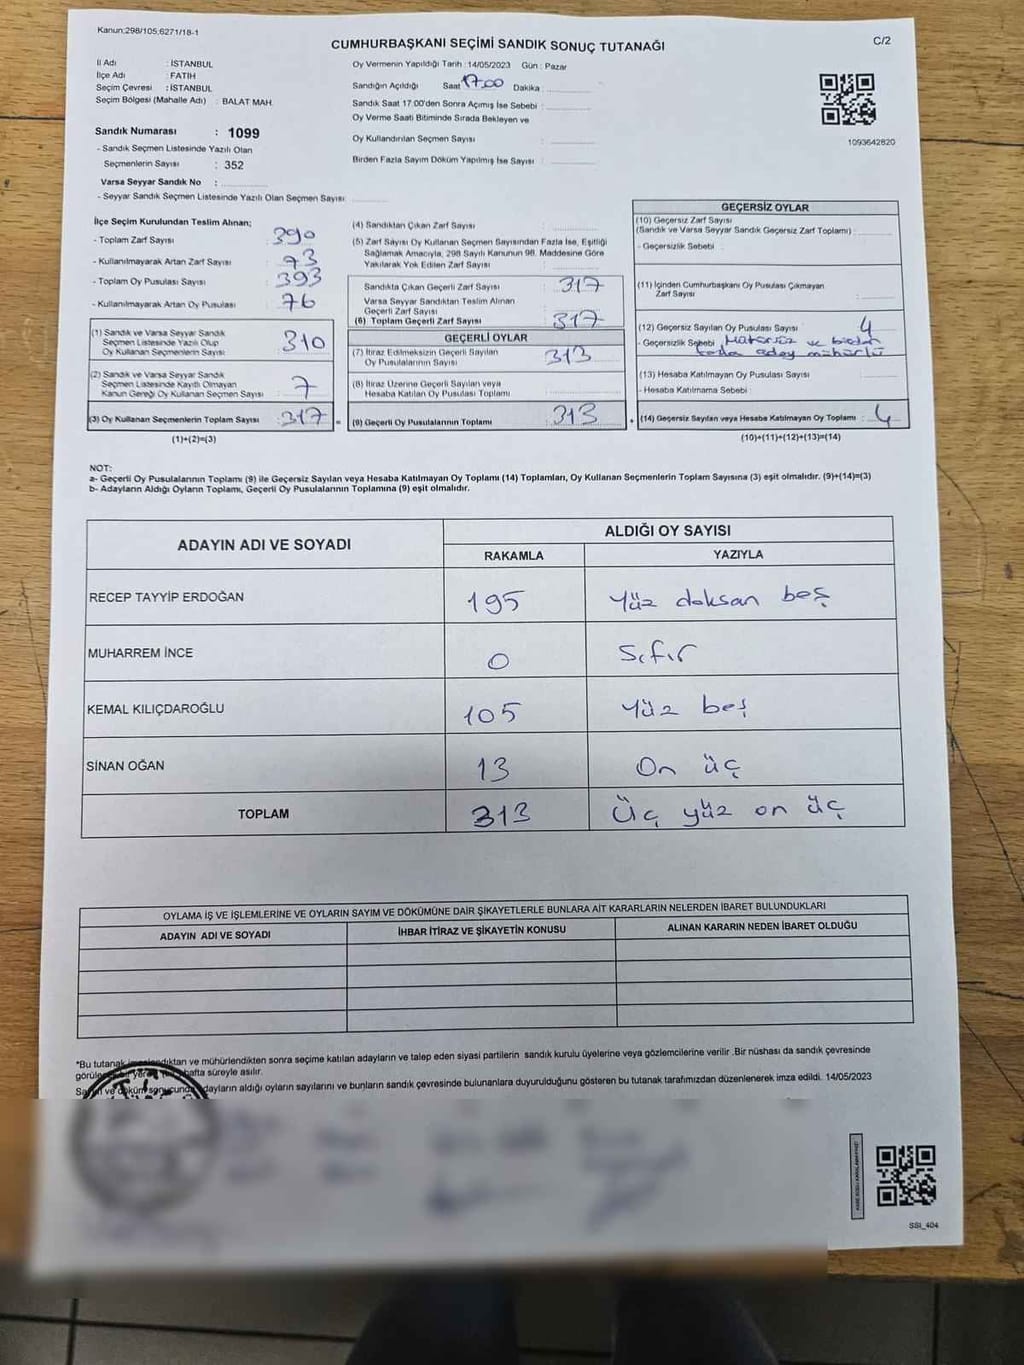 Kanun:298/105,6271/18-1
CUMHURBAŞKANI SEÇİMİ SANDIK SONUÇ TUTANAĞI
C/2
İl Adı : İSTANBUL
İlçe Adı : FATİH
Seçim Çevresi : İSTANBUL
Seçim Bölgesi (Mahalle Adı) : BALAT MAH.
Sandık Numarası : 1099
- Sandık Seçmen Listesinde Yazılı Olan
Seçmenlerin Sayısı : 352
Varsa Seyyar Sandık No :
- Seyyar Sandık Seçmen Listesinde Yazılı Olan Seçmen Sayısı:
Oy Vermenin Yapıldığı Tarih : 14/05/2023 Gün : Pazar
Sandığın Açıldığı Saat 17.00 Dakika :
Sandık Saat 17:00'den Sonra Açmış İse Sebebi :
Oy Verme Saati Bitiminde Sırada Bekleyen ve
Oy Kullandırılan Seçmen Sayısı :
Birden Fazla Sayım Döküm Yapılmış İse Sayısı :
1093642820
İlçe Seçim Kurulundan Teslim Alınan;
- Toplam Zarf Sayısı : 390
- Kullanılmayarak Artan Zarf Sayısı : 73
- Toplam Oy Pusulası Sayısı : 393
- Kullanılmayarak Artan Oy Pusulası : 76
(1) Sandık ve Varsa Seyyar Sandık
Seçmen Listesinde Yazılı Olup
Oy Kullanan Seçmenlerin Sayısı : 310
(2) Sandık ve Varsa Seyyar Sandık
Seçmen Listesinde Kayıtlı Olmayan
Kanun Gereği Oy Kullanan Seçmen Sayısı : 7
(3) Oy Kullanan Seçmenlerin Toplam Sayısı : 317
(1)+(2)=(3)
(4) Sandıktan Çıkan Zarf Sayısı :
(5) Zarf Sayısı Oy Kullanan Seçmen Sayısından Fazla İse, Eşitliği
Sağlamak Amacıyla, 298 Sayılı Kanunun 98. Maddesine Göre
Yakılarak Yok Edilen Zarf Sayısı :
Sandıkta Çıkan Geçerli Zarf Sayısı : 317
Varsa Seyyar Sandıktan Teslim Alınan
Geçerli Zarf Sayısı :
(6) Toplam Geçerli Zarf Sayısı : 317
GEÇERLİ OYLAR
(7) İtiraz Edilmeksizin Geçerli Sayılan
Oy Pusulalarının Sayısı : 313
(8) İtiraz Üzerine Geçerli Sayılan veya
Hesaba Katılan Oy Pusulası Toplamı :
= (9) Geçerli Oy Pusulalarının Toplamı : 313 +
GEÇERSİZ OYLAR
(10) Geçersiz Zarf Sayısı
(Sandık ve Varsa Seyyar Sandık Geçersiz Zarf Toplamı) :
- Geçersizlik Sebebi :
(11) İçinden Cumhurbaşkanı Oy Pusulası Çıkmayan
Zarf Sayısı :
(12) Geçersiz Sayılan Oy Pusulası Sayısı : 4
- Geçersizlik Sebebi : Mühürsüz ve birden
fazla aday mühürlü
(13) Hesaba Katılmayan Oy Pusulası Sayısı :
- Hesaba Katılmama Sebebi :
(14) Geçersiz Sayılan veya Hesaba Katılmayan Oy Toplamı : 4
(10)+(11)+(12)+(13)=(14)
NOT:
a- Geçerli Oy Pusulalarının Toplamı (9) ile Geçersiz Sayılan veya Hesaba Katılmayan Oy Toplamı (14) Toplamları, Oy Kullanan Seçmenlerin Toplam Sayısına (3) eşit olmalıdır. (9)+(14)=(3)
b- Adayların Aldığı Oyların Toplamı, Geçerli Oy Pusulalarının Toplamına (9) eşit olmalıdır.
ADAYIN ADI VE SOYADI ALDIĞI OY SAYISI
RAKAMLA YAZIYLA
RECEP TAYYİP ERDOĞAN 195 Yüz doksan beş
MUHARREM İNCE 0 Sıfır
KEMAL KILIÇDAROĞLU 105 Yüz beş
SİNAN OĞAN 13 On üç
TOPLAM 313 Üç yüz on üç
OYLAMA İŞ VE İŞLEMLERİNE VE OYLARIN SAYIM VE DÖKÜMÜNE DAİR ŞİKAYETLERLE BUNLARA AİT KARARLARIN NELERDEN İBARET BULUNDUKLARI
ADAYIN ADI VE SOYADI İHBAR İTİRAZ VE ŞİKAYETİN KONUSU ALINAN KARARIN NEDEN İBARET OLDUĞU
*Bu tutanak imzalandıktan ve mühürlendikten sonra seçime katılan adayların ve talep eden siyasi partilerin sandık kurulu üyelerine veya gözlemcilerine verilir .Bir nüshası da sandık çevresinde
hafta süreyle asılır.
Sayım ve döküm sonucunda adayların aldığı oyların sayılarını ve bunların sandık çevresinde bulunanlara duyurulduğunu gösteren bu tutanak tarafımızdan düzenlenerek imza edildi. 14/05/2023
SSI_404